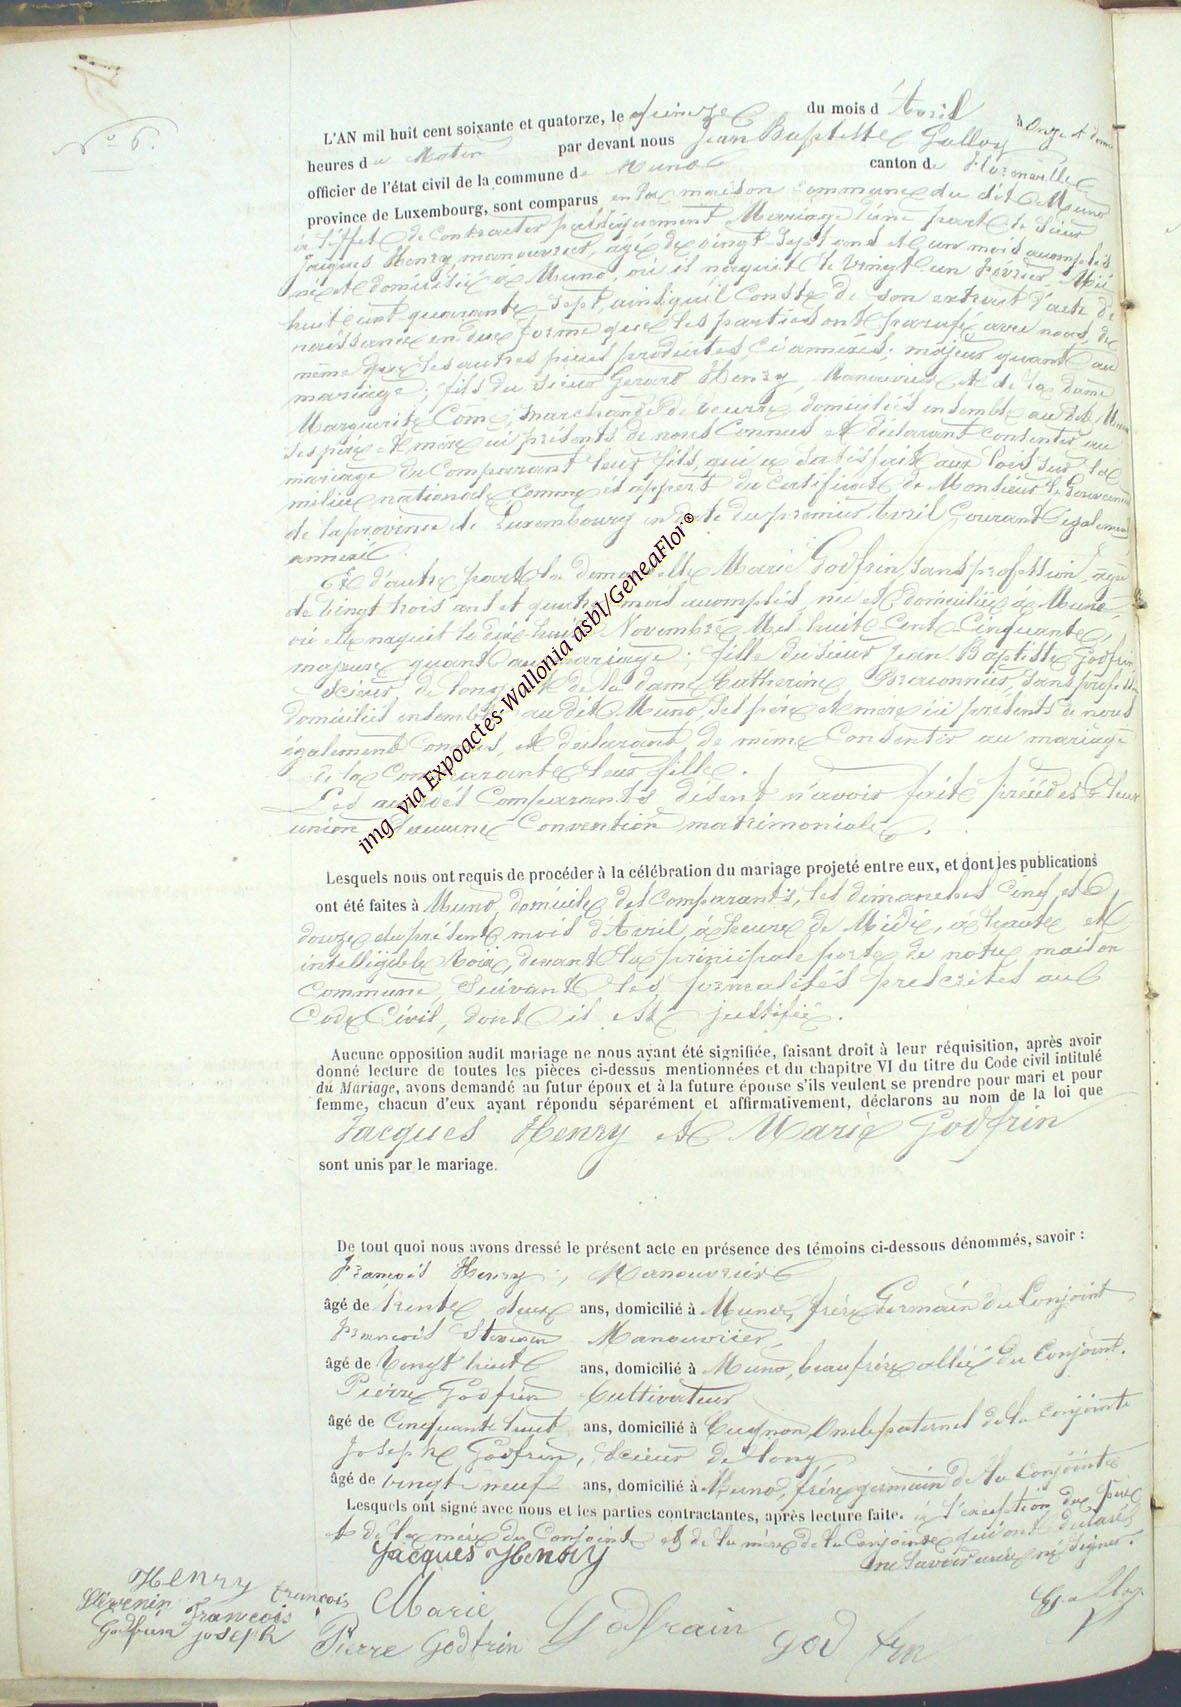 N° 6.
L'AN mil huit cent soixante et quatorze, le quinze du mois d'Avril à onze et demi
heures du Matin par devant nous Jean Baptiste Galloy
officier de l'état civil de la commune de Muno canton de Florenville
province de Luxembourg, sont comparus en la maison commune du dit Muno
à l'effet de contracter publiquement Mariage d'une part le Sieur
Jacques Henry, manouvrier, agé de vingt-sept ans et un mois accomplis
né et domicilié à Muno, où il naquit le vingt un Février Mil
huit cent quarante-sept, ainsi qu'il conste de son extrait d'acte de
naissance en due forme que les parties ont parafé avec nous, de
même que les autres pièces produites ci annexées; majeur quant au
mariage; fils du Sieur Gerard Henry, Manouvrier et de la dame
Marguerite Come, marchande de beurre, domiciliés ensemble au dit Muno
ses père et mère ici présents de nous connus et déclarant consentir au
mariage du Comparant leur fils, qui a satisfait aux lois sur la
milice nationale, comme il appert du certificat de Monsieur le Gouverneur
de la province de Luxembourg en date du premier Avril Courant également
annexé.
Et d'autre part la demoiselle Marie Godfrin, sans profession, agée
de vingt trois ans et quatre mois accomplis, née et domiciliée à Muno,
où elle naquit le dix-huit Novembre Mil huit Cent Cinquante,
majeure quant au mariage; fille du sieur Jean Baptiste Godfrin,
Scieur de long et de la dame Catherine Braconnier, sans profession
domiciliés ensemble au dit Muno, ses père et mère ici présents de nous
également connus, et déclarant de même Consentir au mariage
de la Comparante leur fille.
Les susdits Comparants disent n'avoir fait précéder leur
union d'aucune Convention matrimoniale.
Lesquels nous ont requis de procéder à la célébration du mariage projeté entre eux, et dont les publications
ont été faites à Muno, domicile des Comparants, les dimanches cinq et
douze du présent mois d'Avril, à l'heure de Midi, à haute et
intelligible voix, devant la principale porte de notre maison
Commune, suivant les formalités prescrites au
Code Civil, dont il est justifié.
Aucune opposition audit mariage ne nous ayant été signifiée, faisant droit à leur réquisition, après avoir
donné lecture de toutes les pièces ci-dessus mentionnées et du chapitre VI du titre du Code civil intitulé
du Mariage, avons demandé au futur époux et à la future épouse s'ils veulent se prendre pour mari et pour
femme, chacun d'eux ayant répondu séparément et affirmativement, déclarons au nom de la loi que
Jacques Henry et Marie Godfrin
sont unis par le mariage.
De tout quoi nous avons dressé le présent acte en présence des témoins ci-dessous dénommés, savoir :
François Henry, Manouvrier
âgé de trente deux ans, domicilié à Muno, frère Germain du Conjoint
François Manouvrier
âgé de Vingt huit ans, domicilié à Muno, beau frère allié du Conjoint.
Pierre Godfrin Cultivateur
âgé de Cinquante huit ans, domicilié à Cugnon, Oncle paternel de la conjointe
Joseph Godfrin, Scieur de long
âgé de vingt neuf ans, domicilié à Muno, frère germain de la Conjointe
Lesquels ont signé avec nous et les parties contractantes, après lecture faite. à l'exception du père
et de la mère du Conjoint et de la mère de la Conjointe qui ont déclaré
ne savoir écrire ni signer.
Jacques Henry
Henry françois
françois
Godfrin joseph
Marie Godfrain
Pierre Godfrin
God frin
img via Expoactes-Wallonia asbl/GeneaFlor©